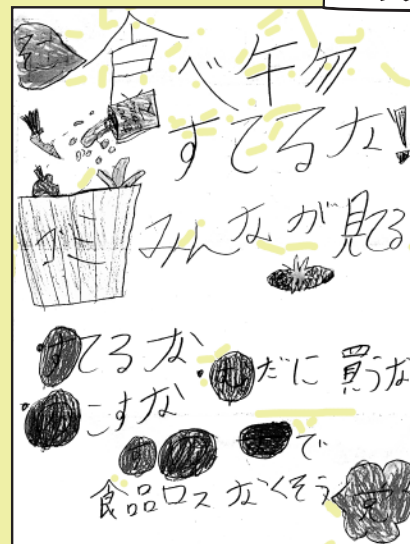 食べ物
すてるな!
ゴミ
みんなが見てる
・すてるな
・むだに買うな
・のこすな
で
食品ロスなくそう